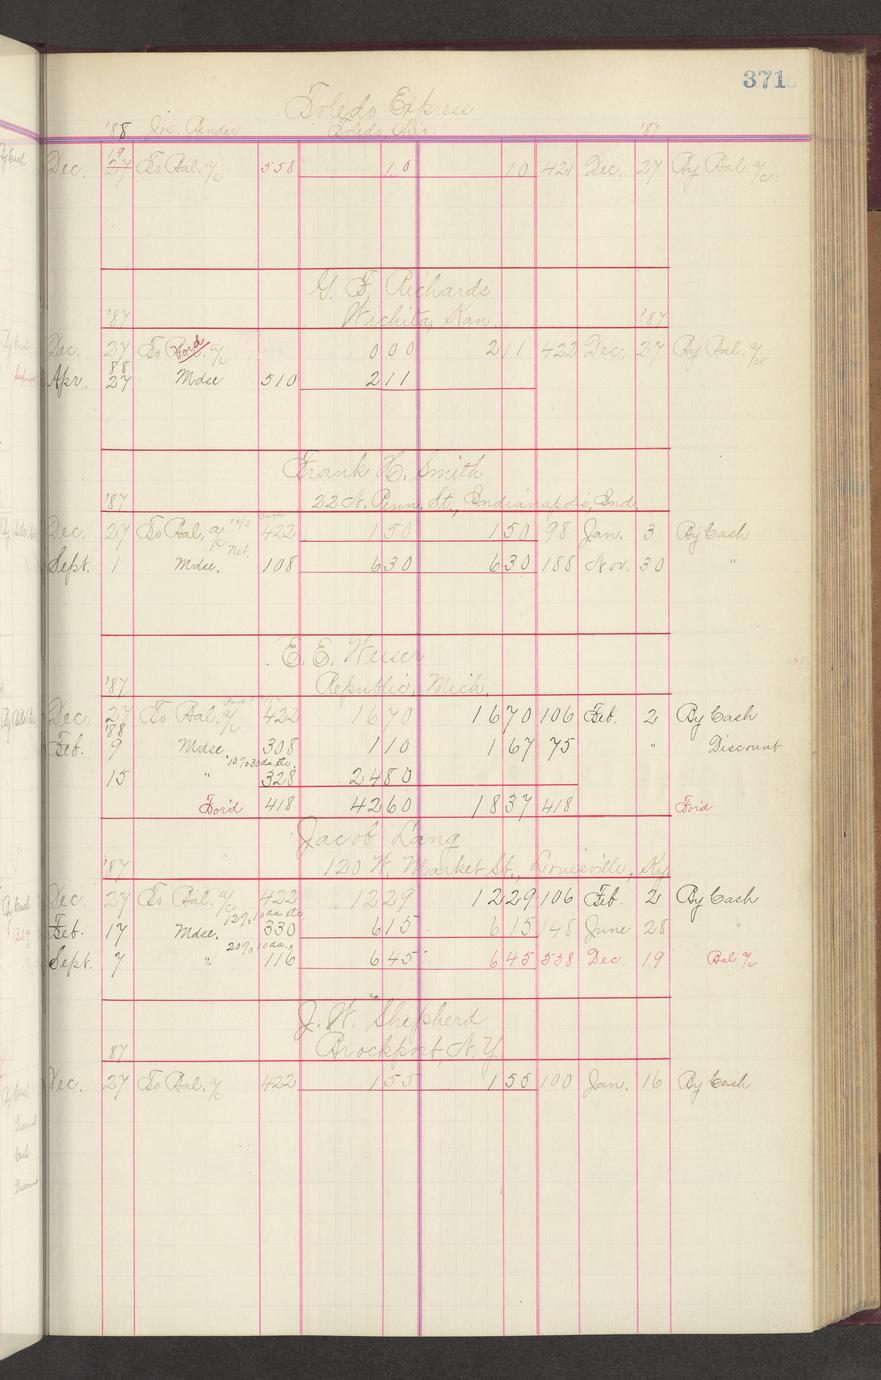 371
Toledo Express
'88 Toledo, Ohio. '87
Dec. 19 27 To Bal. a/c 558 10 10 421 Dec. 27 By Bal. a/c
G. F. Richards
'87 Wichita, Kan. '87
Dec. 27 To Ford. a/c 000 211 422 Dec. 27 By Bal. a/c
88
Apr. 27 Mdse 510 211
Frank H. Smith
'87 22 N. Penn. St., Indianapolis, Ind.
Dec. 27 To Bal. a/c 422 150 150 98 Jan. 3 By Cash
Net.
Sept. 1 Mdse. 108 630 630 188 Nov. 30 "
E. E. Weiser
'87 Republic, Mich.
Dec. 27 To Bal. a/c 422 1670 1670 106 Feb. 2 By Cash
'88
Feb. 9 Mdse 308 110 167 75 " Discount
10% 30 da.
15 " 328 2480
Ford 418 4260 1837 418 Ford
Jacob Lang
'87 120 W. Market St., Louisville, Ky.
Dec. 27 To Bal. a/c 422 1229 1229 106 Feb. 2 By Cash
12% 10 da.
Feb. 17 Mdse. 330 615 615 148 June 28 "
20% 10 da.
Sept. 7 " 116 645 645 558 Dec. 19 Bal. a/c
J. W. Shepherd
87 Brockport, N.Y.
Dec. 27 To Bal. a/c 422 155 155 100 Jan. 16 By Cash